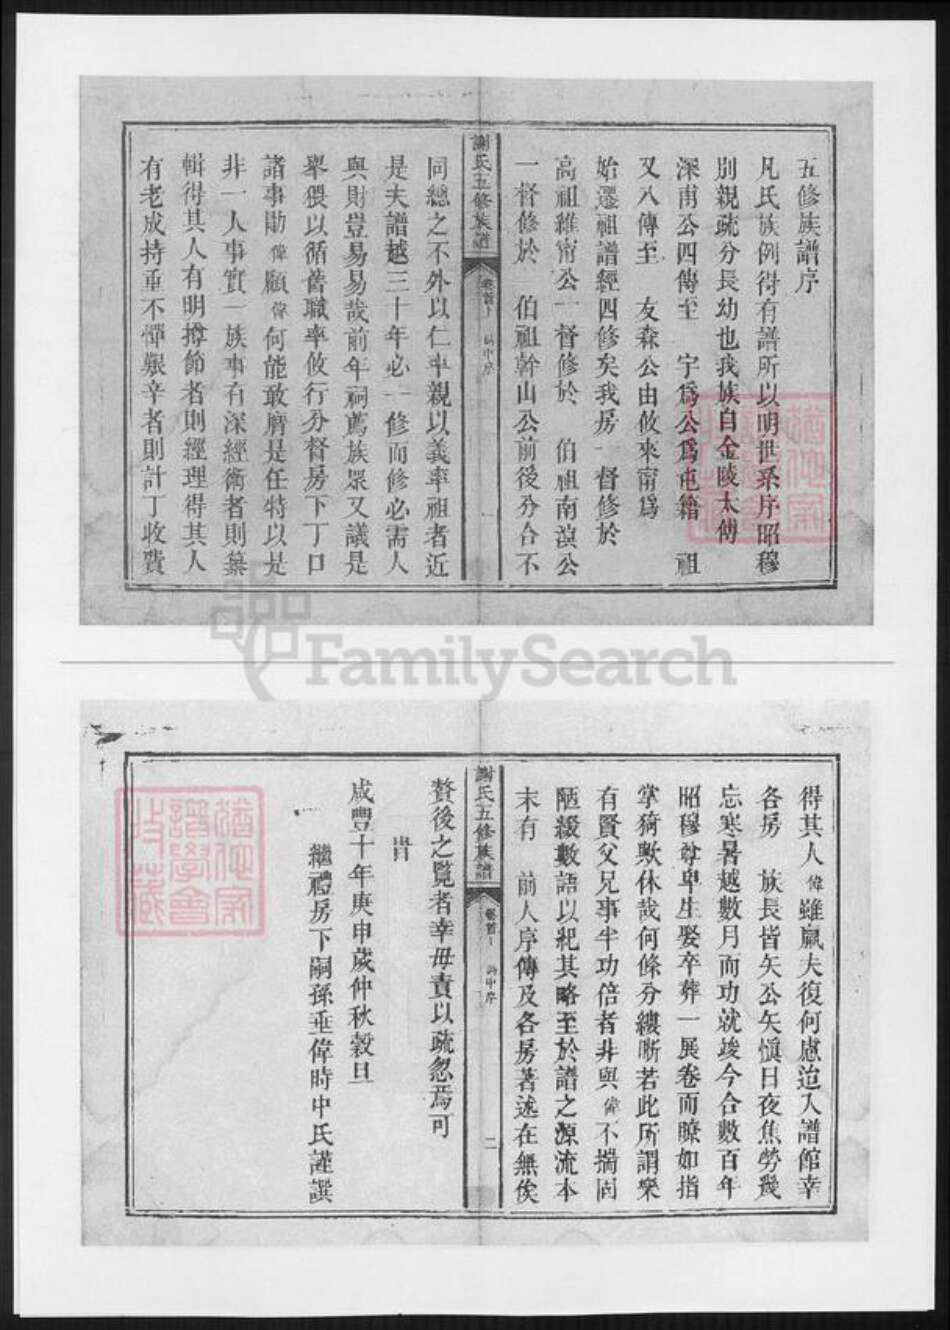 五修族譜序
凡氏族例得有譜所以明世系序昭穆
別親疏分長幼也我族自金陵太傅
深甫公四傳至 宇爲公爲屯籍 祖
又八傳至 友森公由攸來甯爲
始遷祖譜經四修矣我房一督修於
高祖維甯公一督修於 伯祖南溟公
一督修於 伯祖幹山公前後分合不
謝氏五修族譜 卷首上 時中序 一
同總之不外以仁率親以義率祖者近
是夫譜越三十年必一修而修必需人
與財豈易易哉前年祠薦族眾又議是
舉猥以循舊職率攸行分督房下丁口
諸事勖偉顧偉何能敢膺是任特以是
非一人事實一族事有深經術者則纂
輯得其人有明撙節者則經理得其人
有老成持重不憚艱辛者則計丁收費
得其人偉雖羸夫復何慮迨入譜館幸
各房 族長皆矢公矢愼日夜焦勞幾
忘寒暑越數月而功就竣今合數百年
昭穆尊卑生娶卒葬一展卷而瞭如指
掌猗歟休哉何條分縷晰若此所謂樂
有賢父兄事半功倍者非與偉不揣固
陋綴數語以紀其略至於譜之源流本
末有 前人序傳及各房著述在無俟
謝氏五修族譜 卷首上 時中序 二
贅後之覽者幸毋責以疏忽焉可
旹
咸豐十年庚申歲仲秋穀旦
繼禮房下嗣孫垂偉時中氏謹譔
FamilySearch